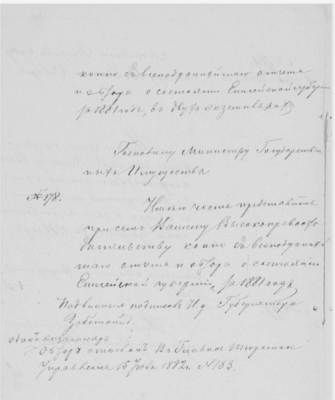 копию съ всеподданнейшаго отчета
и обзора о состоянии Енисейской губернии
за 1881 годъ, въ двухъ экземплярахъ
Господину Министру Государствен-
ныхъ Имуществъ.
№ 178.
Имею честь представить
при семъ Вашему Высокопревосхо-
дительству копию съ всеподданней-
шаго отчета и обзора о состоянии
Енисейской губернии, за 1881 годъ,
Подлинныя подписалъ И. д. Губернатора
Обзоръ отосланъ въ Главное Тюремное
Управление 15 1882 г. № 183.